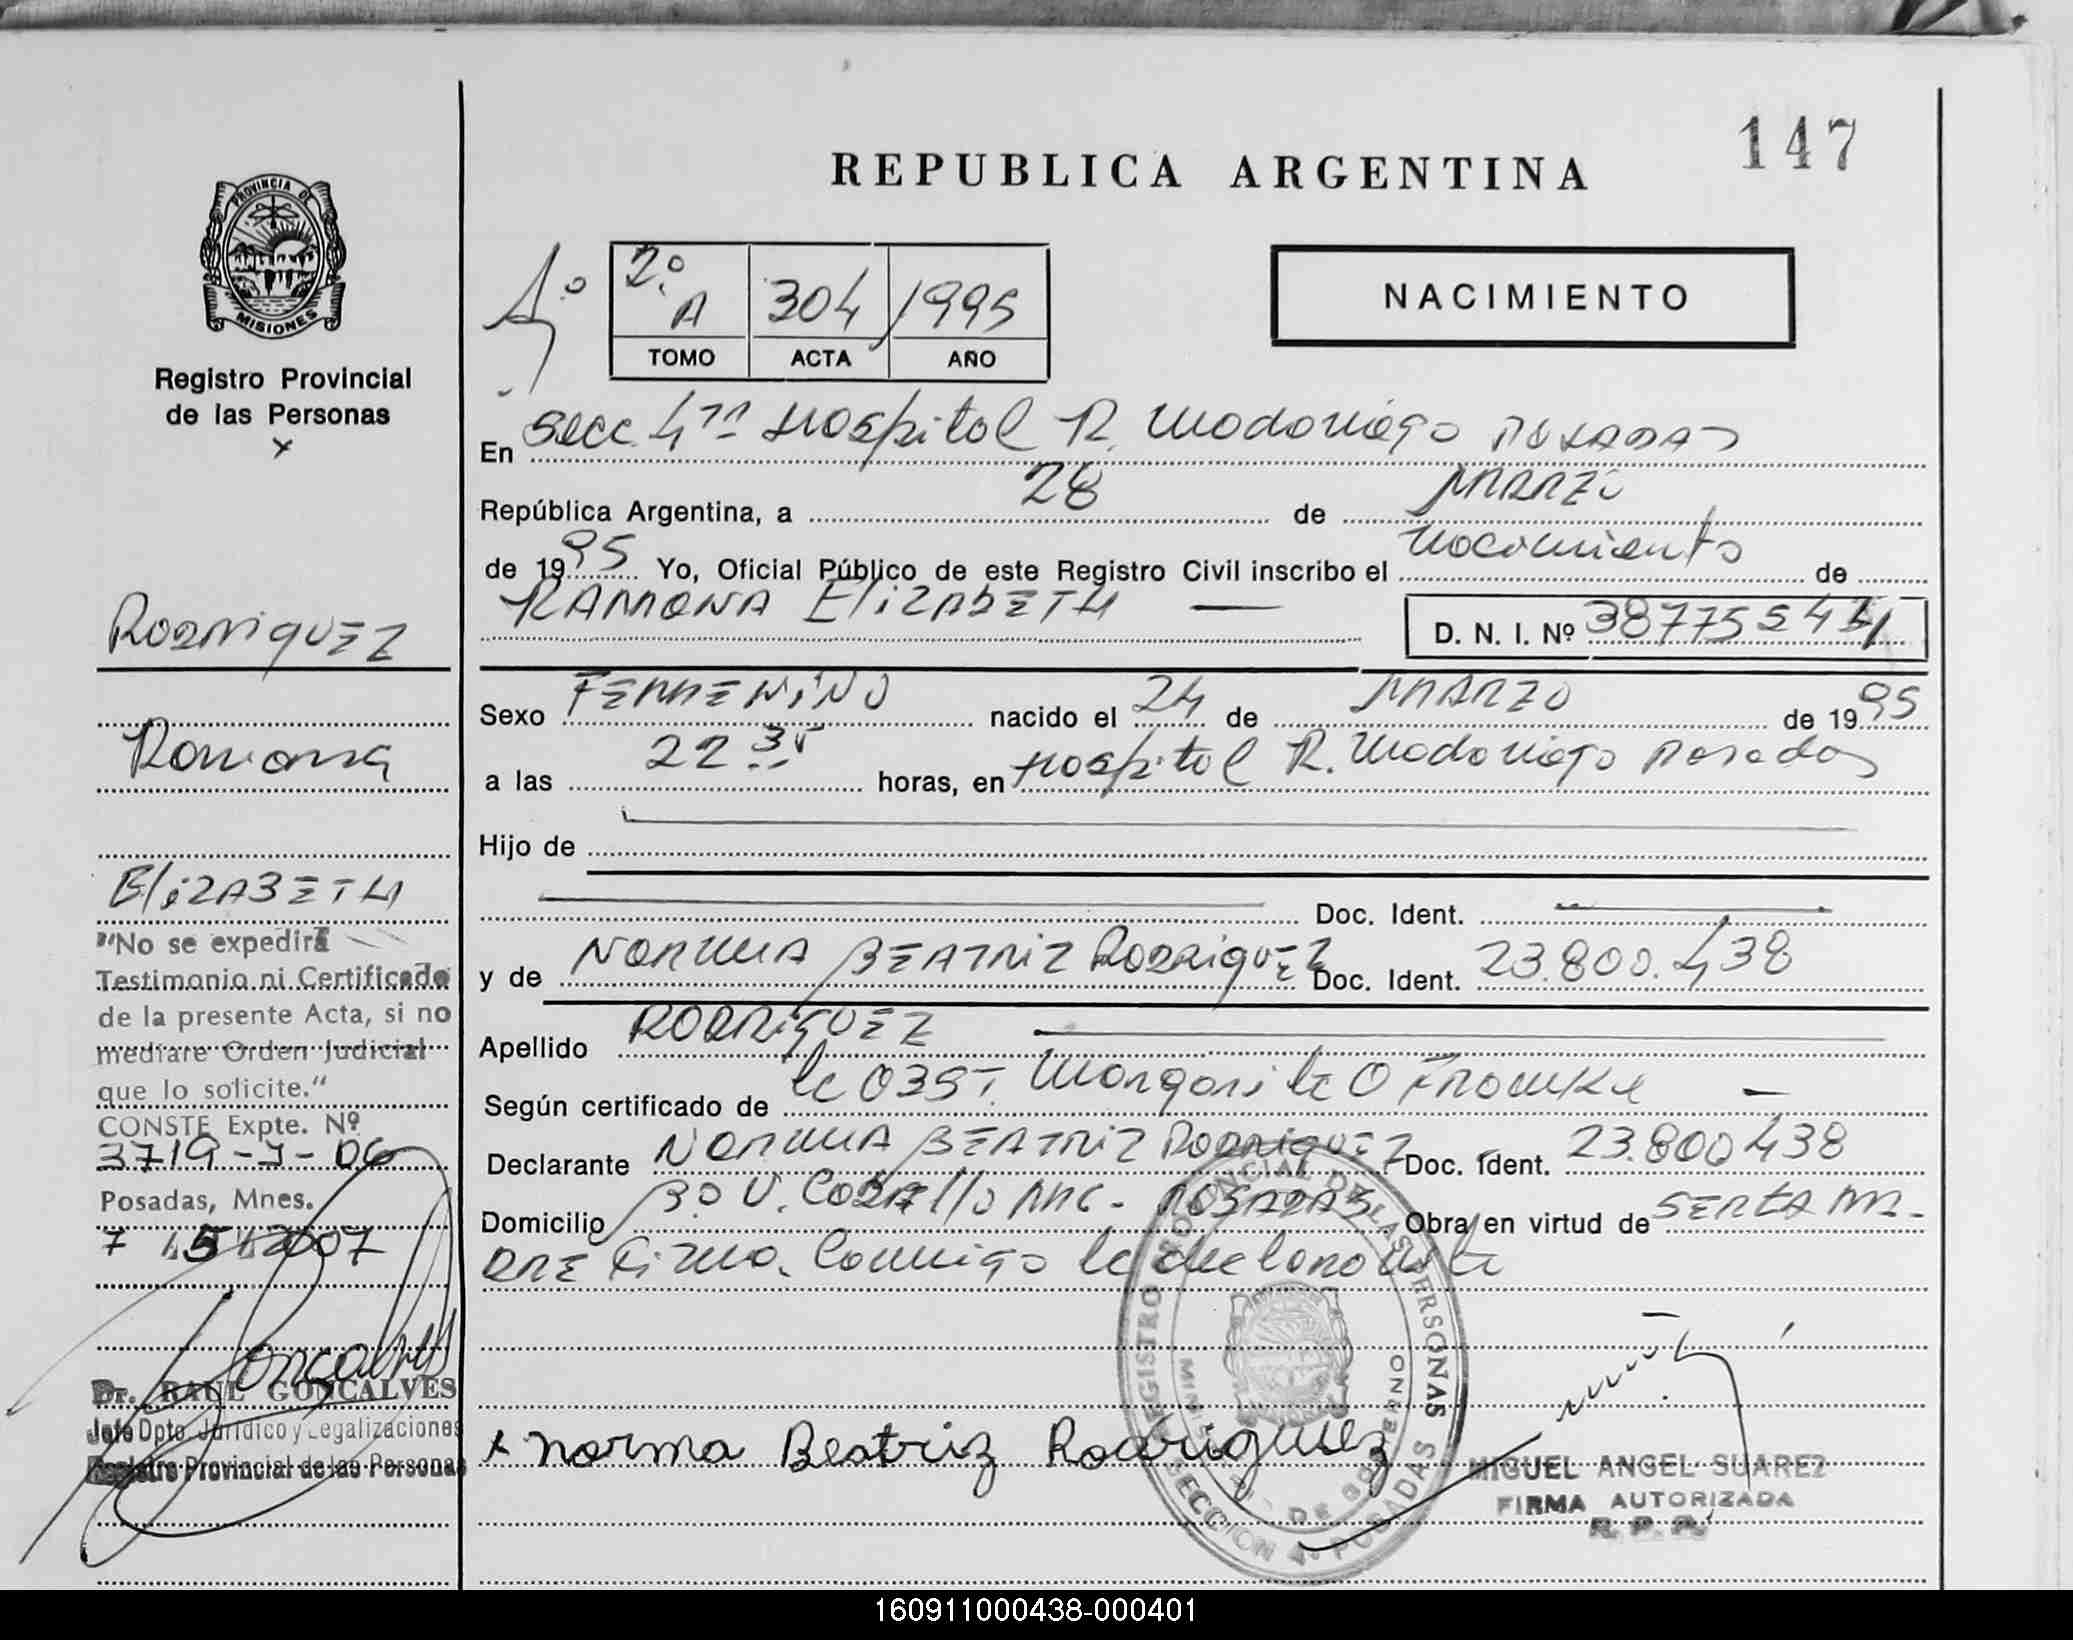 147
REPUBLICA ARGENTINA
PROVINCIA DE
MISIONES
Registro Provincial
de las Personas
x
2º A 304 1995
TOMO ACTA AÑO
NACIMIENTO
En Secc 4ta Hospital R. Madariaga POSADAS
República Argentina, a 28 de MARZO
de 1995 Yo, Oficial Público de este Registro Civil inscribo el nacimiento de
RAMONA ElizABETH — D. N. I. Nº
Sexo FEMMENiNO nacido el 24 de MARZO de 1995
a las 22 35 horas, en Hospital R. Madariaga Posadas
Hijo de
Doc. Ident.
y de NORMA BEATRIZ RODRIGUEZ Doc. Ident. 23.800.438
Apellido RODRIGUEZ
Según certificado de la OBST. Margarita O —
Declarante NORMA BEATRIZ RODRIGUEZ Doc. Ident. 23.800438
Domicilio POSADAS Obra en virtud de
DRE Firma Conmigo la declarante
x Norma Beatriz Rodriguez
MIGUEL ANGEL SUAREZ
FIRMA AUTORIZADA
R. P. P.
REGISTRO PROVINCIAL DE LAS PERSONAS
SECCION 4º POSADAS
DE GOBIERNO
RODRIGUEZ
Ramona
ElizABETH
"No se expedirá
Testimonio ni Certificado
de la presente Acta, si no
mediare Orden Judicial
que lo solicite."
CONSTE Expte. Nº
3719-J-06
Posadas, Mnes.
7 5 2007
Goncalves
Dr. RAUL GONCALVES
Jefe Dpto. Jurídico y Legalizaciones
Registro Provincial de las Personas
160911000438-000401